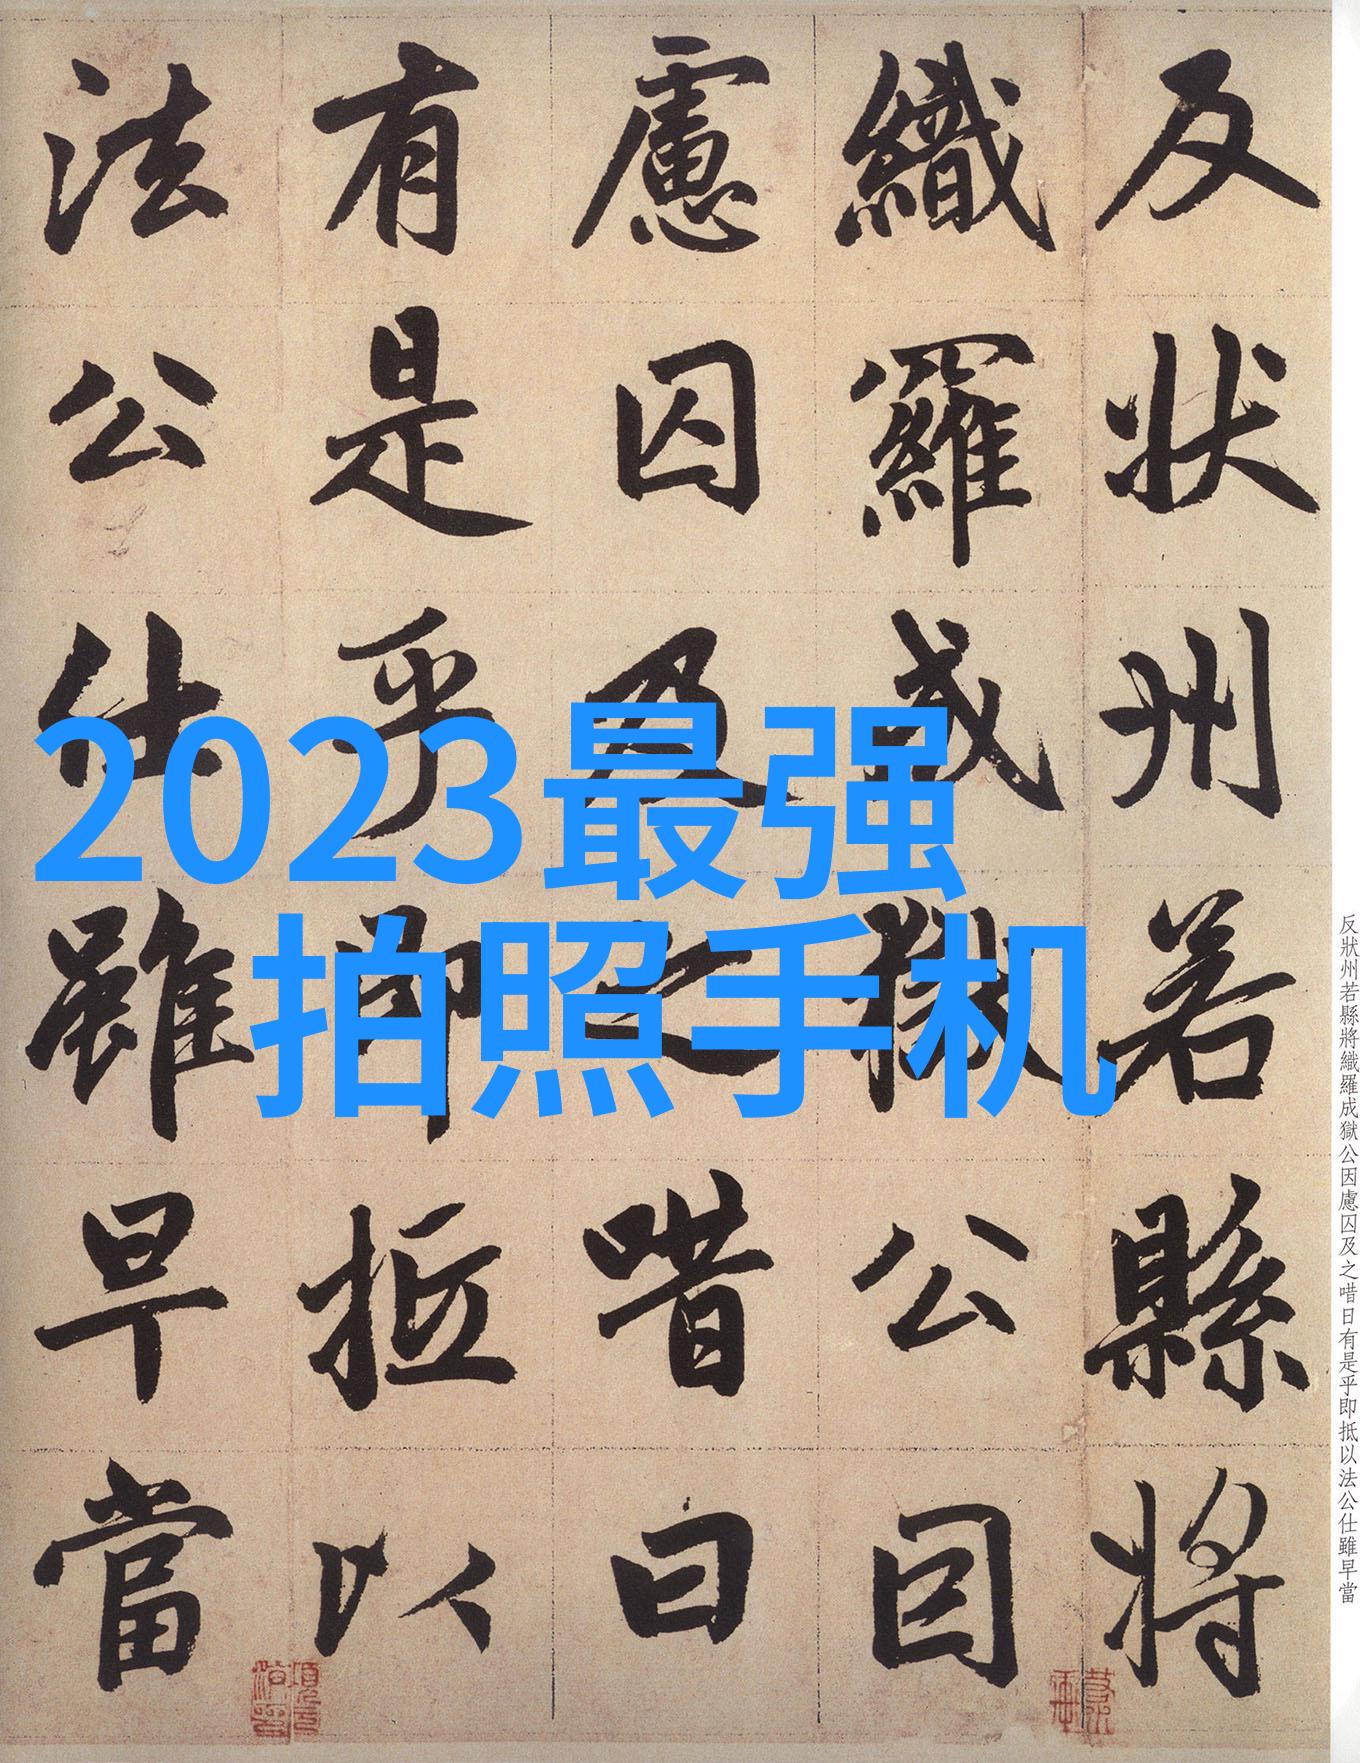 反狀州若縣將
織羅成獄公因
慮囚及之唶曰
有是乎即抵以
法公仕雖早當
2023最强
拍照手机
反狀州若縣將織羅成獄公因慮囚及之唶日有是乎即抵以法公仕雖早當